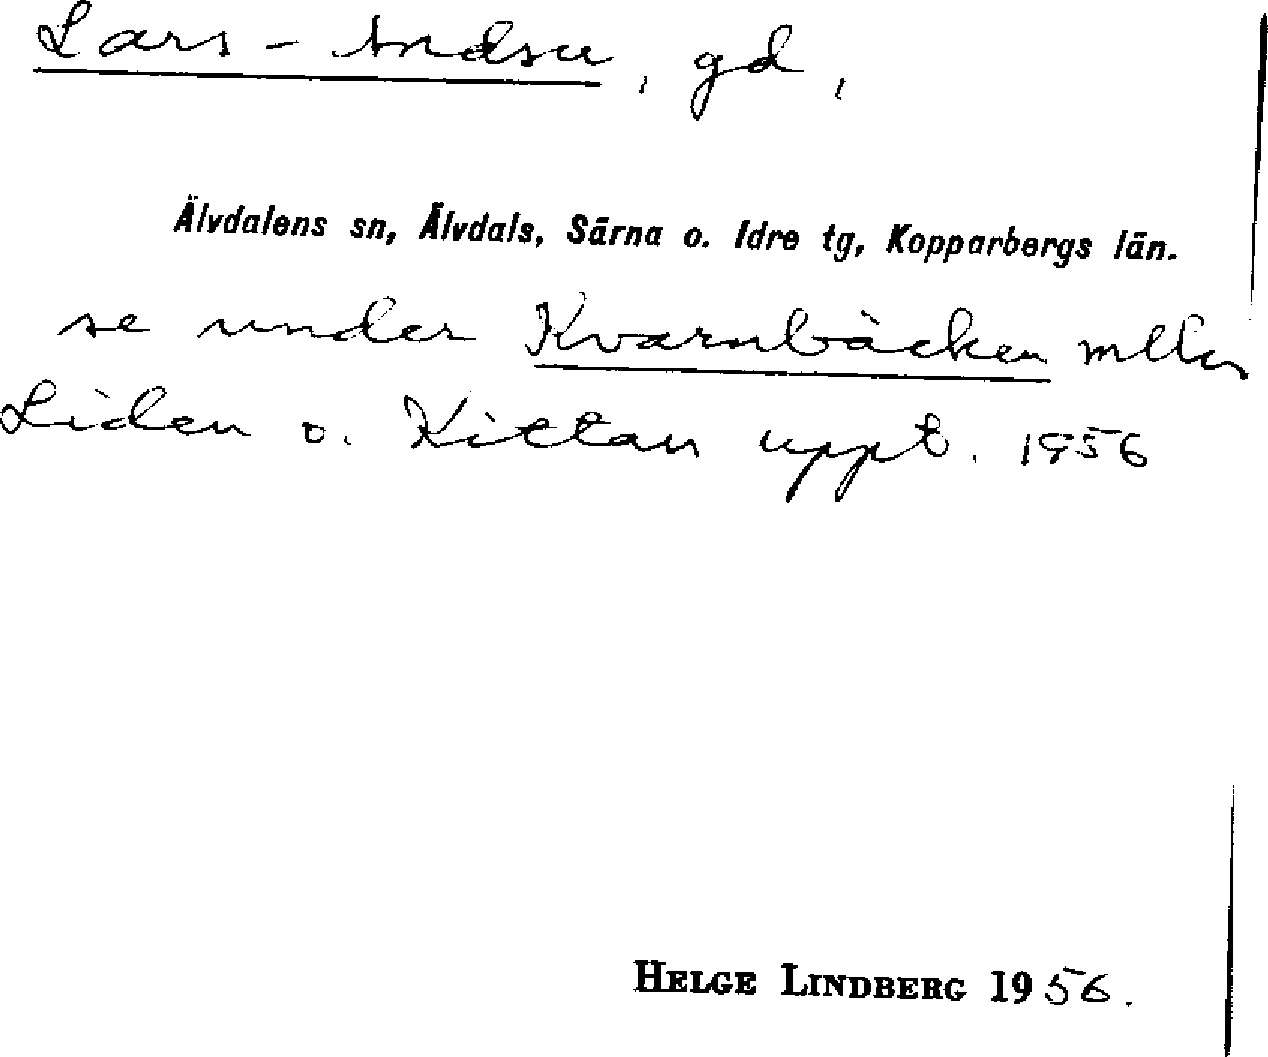 Lars-Andsu, gd,
Älvdalens sn, Älvdals, Särna o. Idre tg, Kopparbergs län.
se under Kvarnbäcken mllan
Liden o. Kittan uppt. 1956
HELGE LINDBERG 1956.